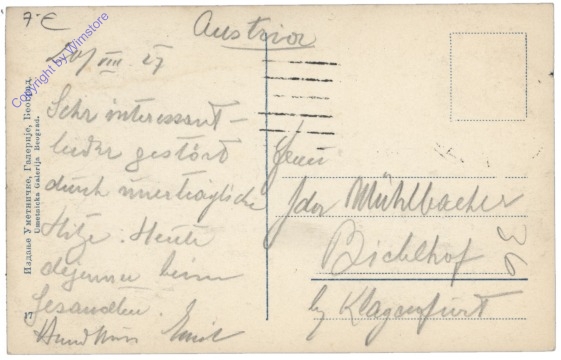 7·E
Austria
20/VIII. 27
Sehr interessant –
leider gestört
durch unerträgliche
Hitze. Heute
dejeuner beim
Gesandten.
Emil
Frau
Mühlbacher
Bichlhof
by Klagenfurt
36
Издање Уметничке Галерије, Београд
Umetnicka Galerija Beograd.
17
Copyright by Wimstore